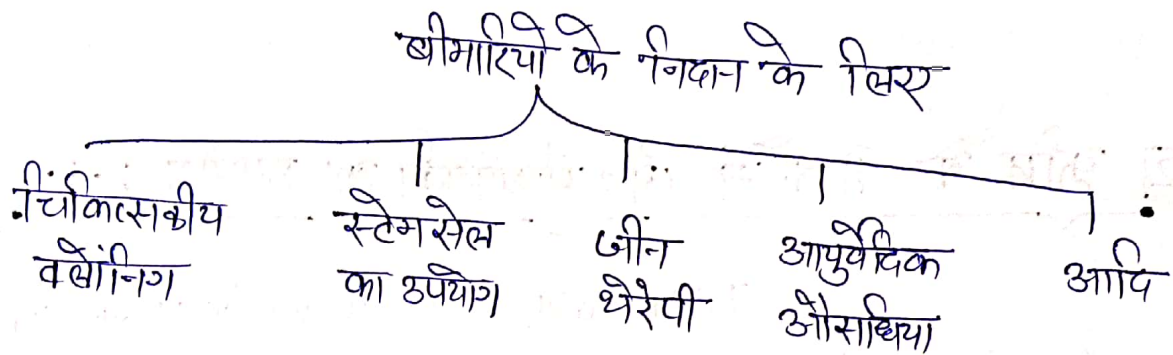 बीमारियों के निदान के लिए
चिकित्सकीय
क्लोंनिग
स्टेम सेल
का उपयोग
जीन
थेरेपी
आयुर्वेदिक
औसधिया
आदि